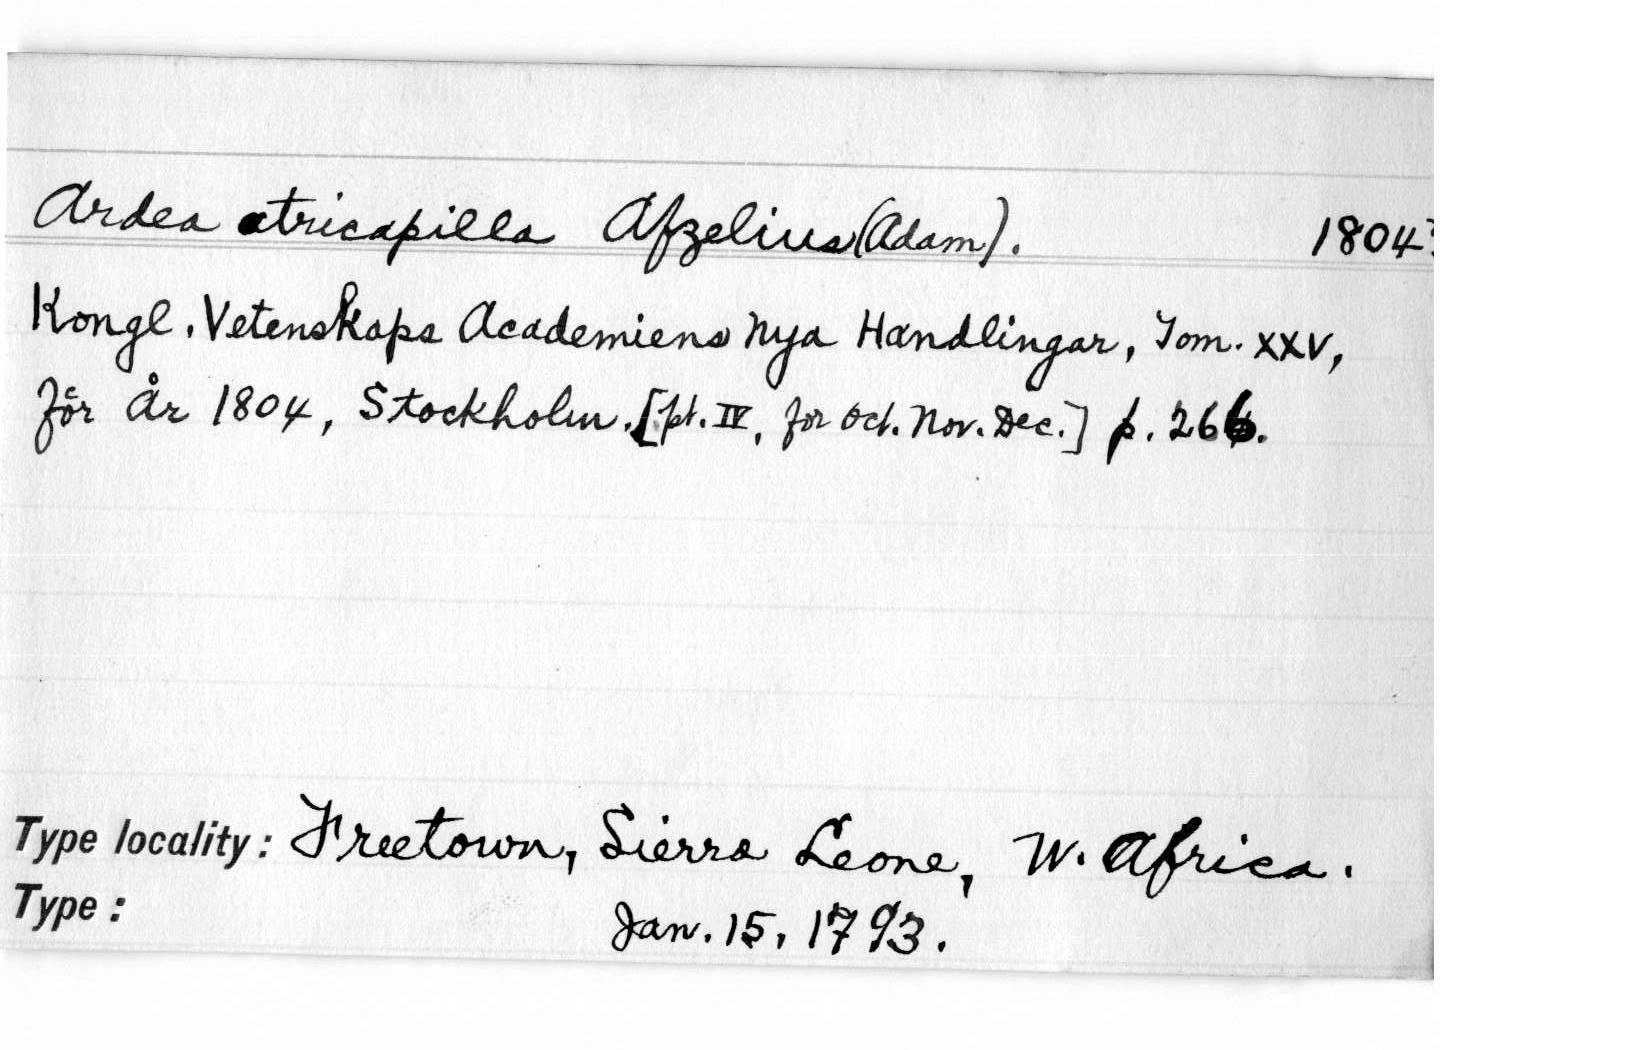 Ardea atricapilla Afzelius (Adam). 1804?
Kongl. Vetenskaps Academiens Nya Handlingar, Tom. XXV,
för År 1804, Stockholm. [pt. IV, for Oct. Nov. Dec.] p. 266.
Type locality: Freetown, Sierra Leone, W. Africa.
Type: Jan. 15, 1793.